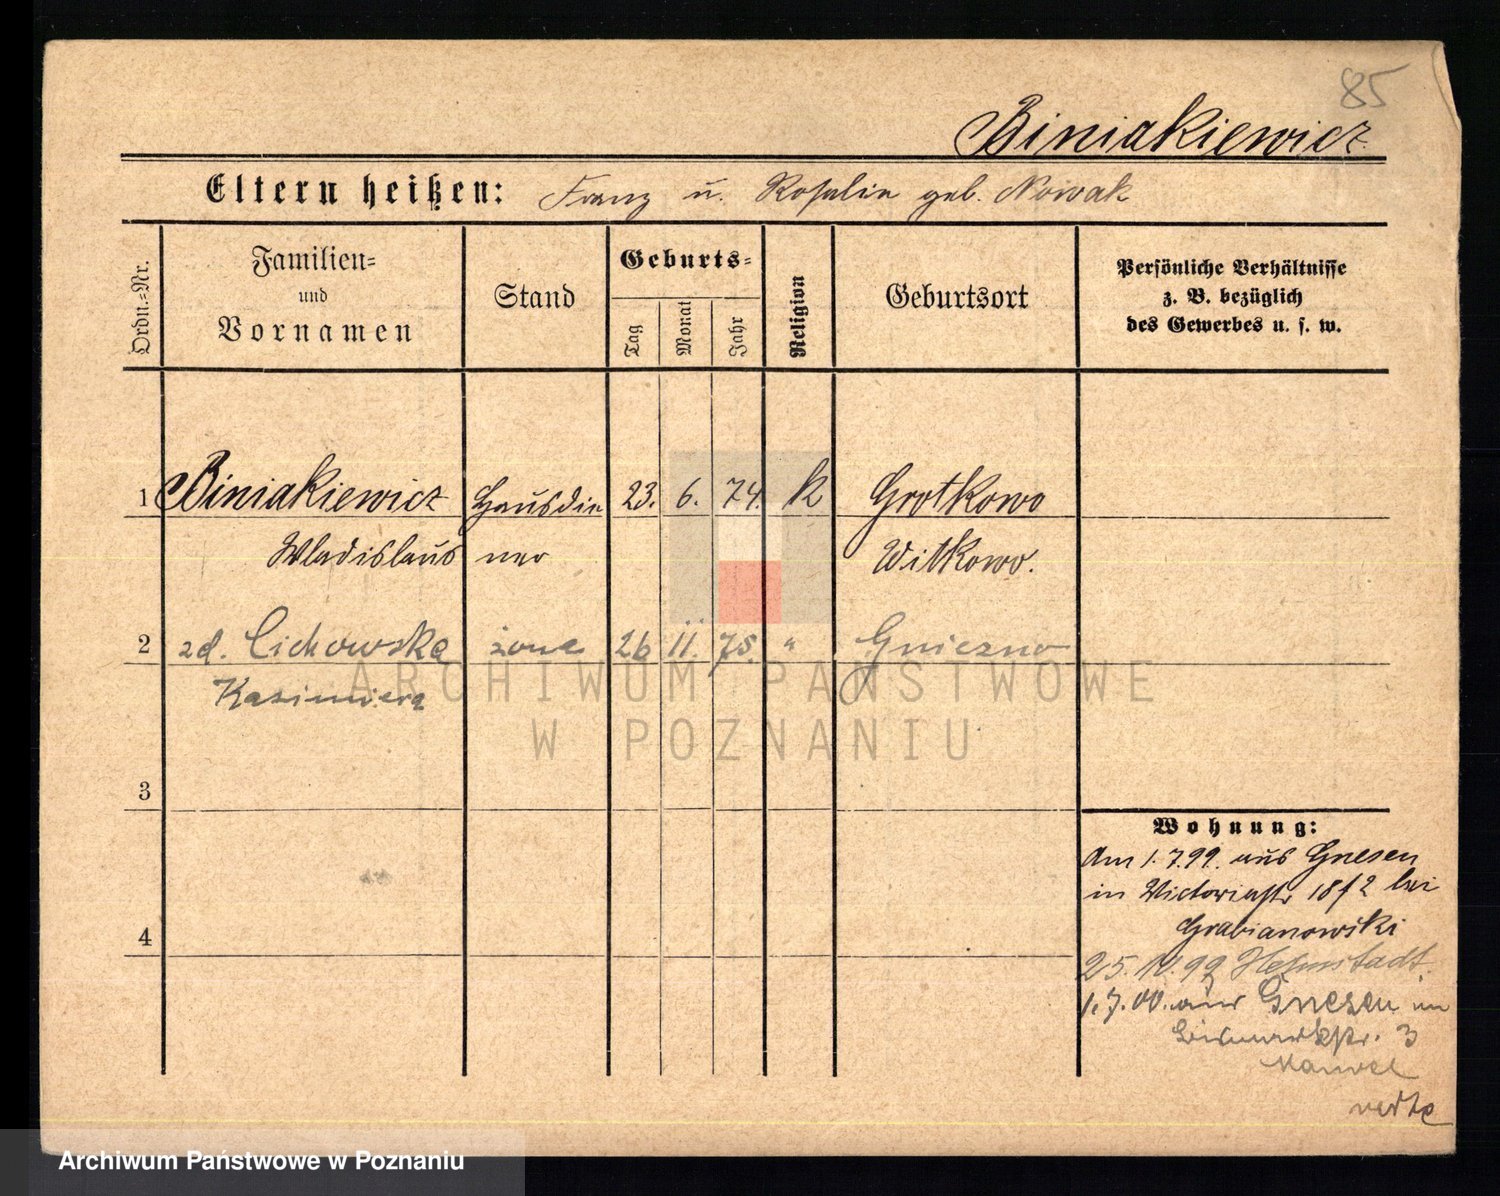 85
Biniakiewicz
Eltern heißen: Franz u. Rosalie geb. Nowak
Ordn.=Nr.
Familien=
und
Vornamen
Stand
Geburts=
Tag
Monat
Jahr
Religion
Geburtsort
Persönliche Verhältnisse
z. B. bezüglich
des Gewerbes u. s. w.
1 Biniakiewicz Hausdie 23. 6. 74. k Grotkowo
Wladislaus ner Witkowo.
2 zd. Cichowska żona 26 11. 75. " Gniezno
Kazimiera
ARCHIWUM PAŃSTWOWE
W POZNANIU
3
4
Wohnung:
Am 1.7.99. aus Gnesen
in Victoriastr 18/2 bei
Grabianowski
25. 99
1.7.00. aus Gnesen in
Bismarckstr. 3
verte
Archiwum Państwowe w Poznaniu